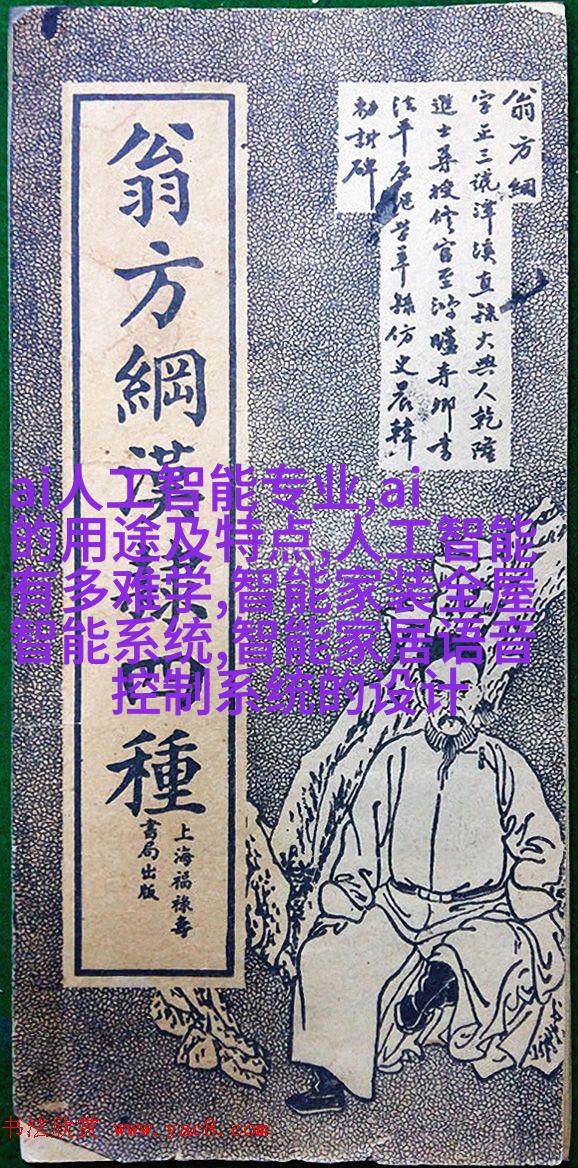 翁方綱
字正三號潭溪直隸大興人乾隆
進士授修官至鴻臚寺卿書
法平原仿史晨韓
勅封碑
翁方綱漢隸四種
上海福祿壽
書局出版
ai人工智能专业,ai
的用途及特点,人工智能
有多难学,智能家装全屋
智能系统,智能家居语音
控制系统的设计
书法欣赏 www.yac8.com